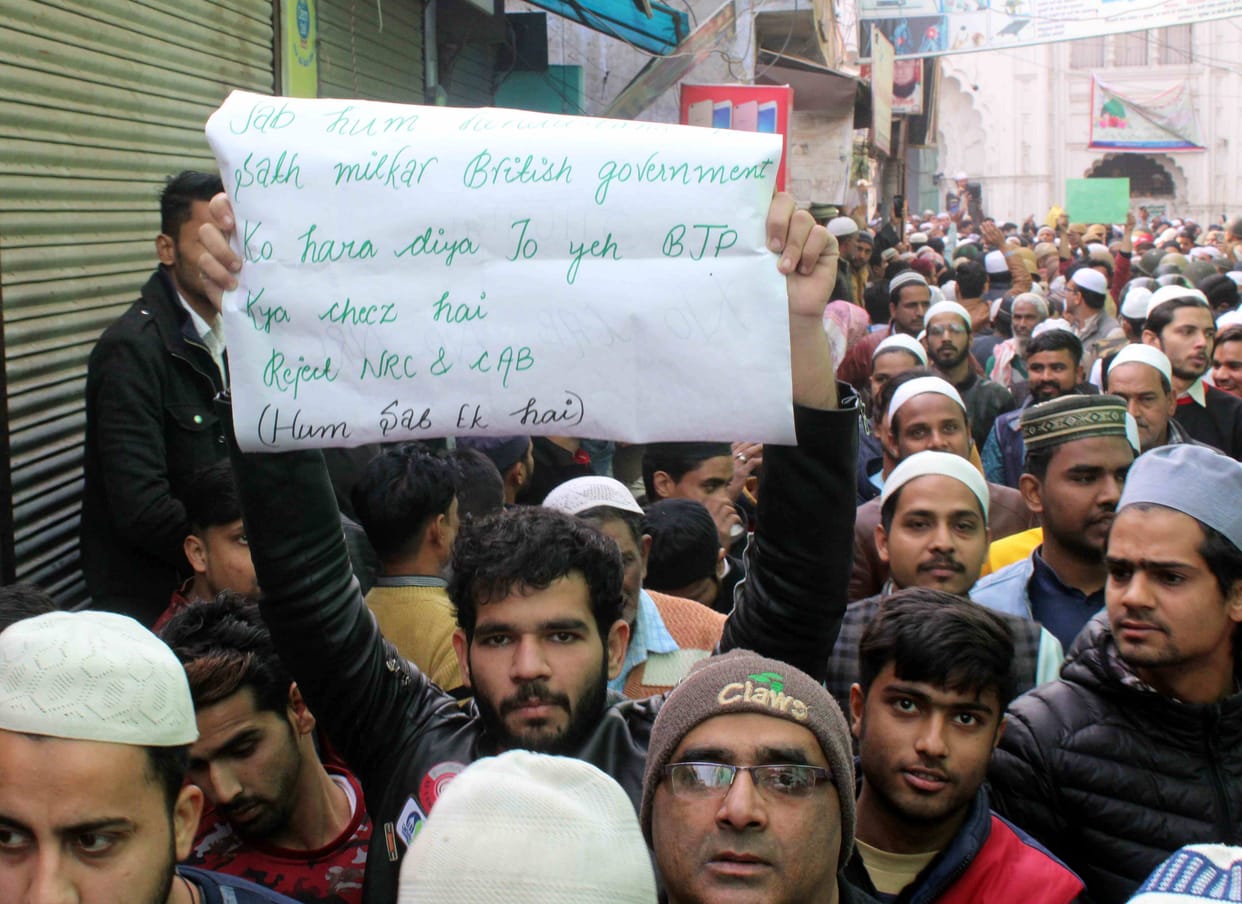 Jab hum
Sath milkar British government
Ko hara diya To yeh BJP
Kya cheez hai
Reject NRC & CAB
(Hum Sab Ek hai)
Claws